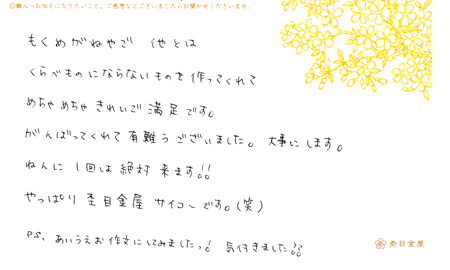 ◎職人へお伝えになりたいこと、ご感想などございましたらお聞かせくださいませ。
もくめがねやで 他とは
くらべものにならないものを作ってくれて
めちゃめちゃ きれいで 満足です。
がんばってくれて 有難うございました。 大事にします。
ねんに 1回は 絶対 来ます!!
やっぱり 杢目金屋 サイコーです。(笑)
P.S. あいうえお作文にしてみましたっ! 気付きました??
杢目金屋